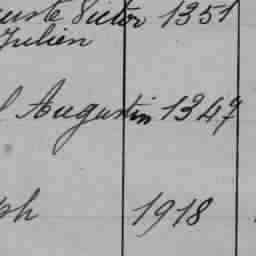 uste Victor 1351
Julien
l Augustin 1347
ph 1918